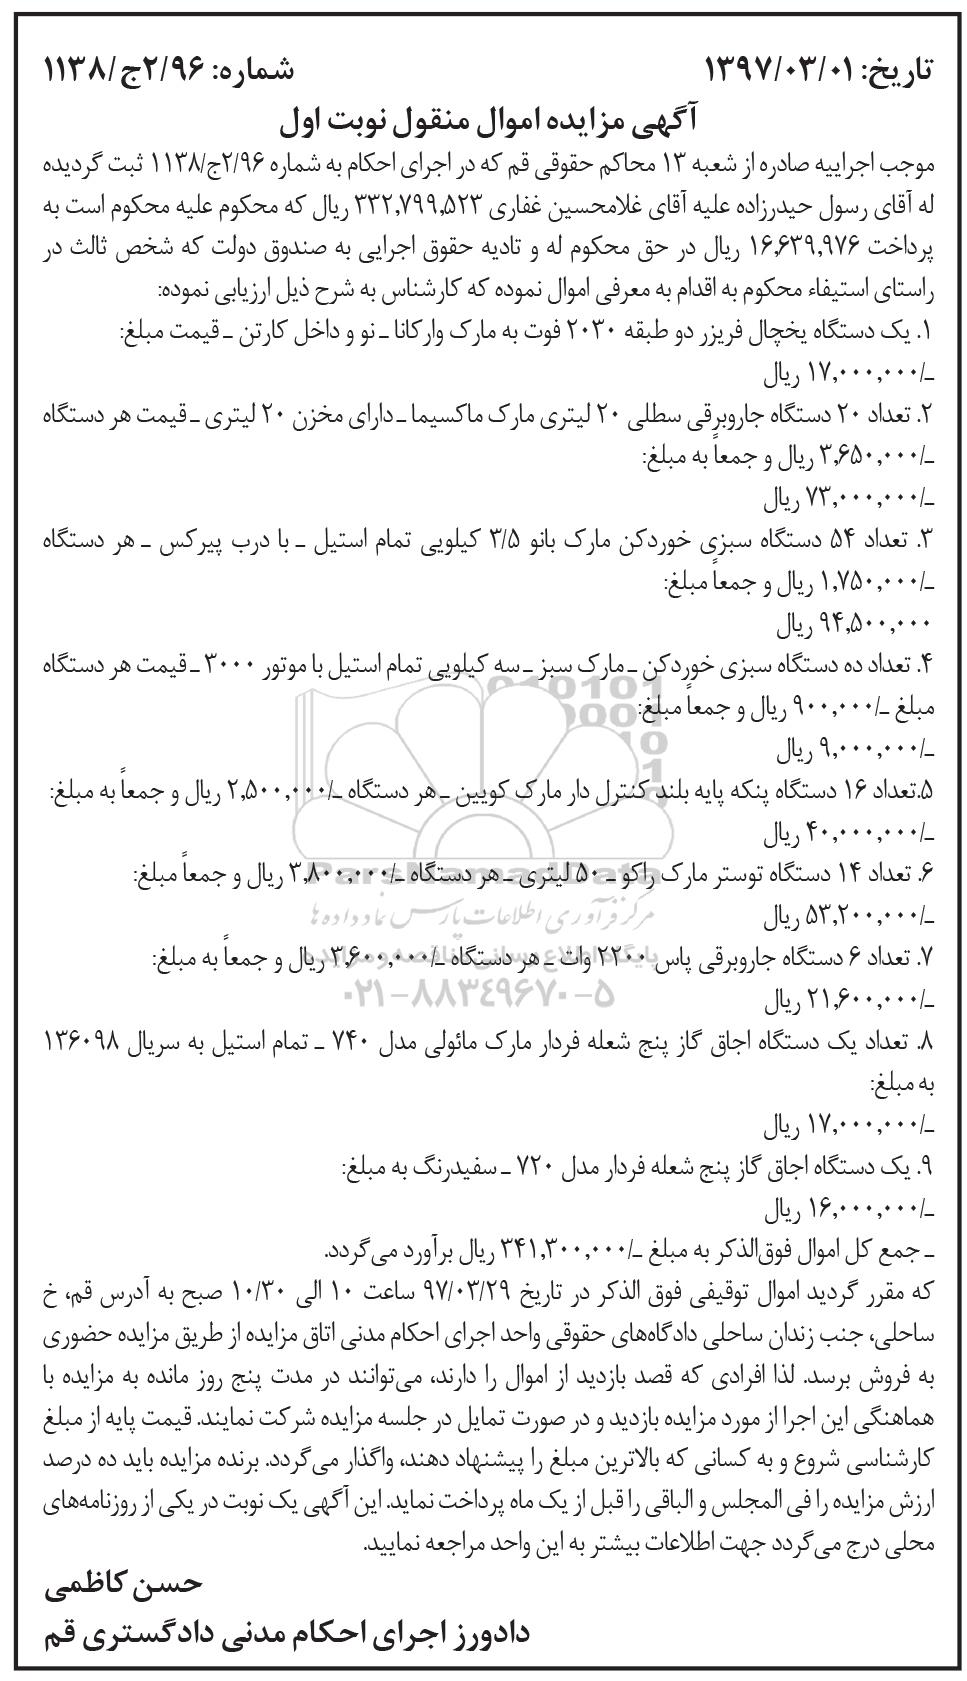 تاریخ: ۱۳۹۷/۰۳/۰۱
شماره: ۲/۹۶ج/۱۱۳۸
آگهی مزایده اموال منقول نوبت اول
موجب اجراییه صادره از شعبه ۱۳ محاکم حقوقی قم که در اجرای احکام به شماره ۲/۹۶ج/۱۱۳۸ ثبت گردیده
له آقای رسول حیدرزاده علیه آقای غلامحسین غفاری ۳۳۲,۷۹۹,۵۲۳ ریال که محکوم علیه محکوم است به
پرداخت ۱۶,۶۳۹,۹۷۶ ریال در حق محکوم له و تادیه حقوق اجرایی به صندوق دولت که شخص ثالث در
راستای استیفاء محکوم به اقدام به معرفی اموال نموده که کارشناس به شرح ذیل ارزیابی نموده:
۱. یک دستگاه یخچال فریزر دو طبقه ۲۰۳۰ فوت به مارک وارکانا ـ نو و داخل کارتن ـ قیمت مبلغ:
ـ/۱۷,۰۰۰,۰۰۰ ریال
۲. تعداد ۲۰ دستگاه جاروبرقی سطلی ۲۰ لیتری مارک ماکسیما ـ دارای مخزن ۲۰ لیتری ـ قیمت هر دستگاه
ـ/۳,۶۵۰,۰۰۰ ریال و جمعاً به مبلغ:
ـ/۷۳,۰۰۰,۰۰۰ ریال
۳. تعداد ۵۴ دستگاه سبزی خوردکن مارک بانو ۳/۵ کیلویی تمام استیل ـ با درب پیرکس ـ هر دستگاه
ـ/۱,۷۵۰,۰۰۰ ریال و جمعاً مبلغ:
۹۴,۵۰۰,۰۰۰ ریال
۴. تعداد ده دستگاه سبزی خوردکن ـ مارک سبز ـ سه کیلویی تمام استیل با موتور ۳۰۰۰ ـ قیمت هر دستگاه
مبلغ ـ/۹۰۰,۰۰۰ ریال و جمعاً مبلغ:
ـ/۹,۰۰۰,۰۰۰ ریال
۵.تعداد ۱۶ دستگاه پنکه پایه بلند کنترل دار مارک کویین ـ هر دستگاه ـ/۲,۵۰۰,۰۰۰ ریال و جمعاً به مبلغ:
ـ/۴۰,۰۰۰,۰۰۰ ریال
۶. تعداد ۱۴ دستگاه توستر مارک راکو ـ ۵۰ لیتری ـ هر دستگاه ـ/۳,۸۰۰,۰۰۰ ریال و جمعاً مبلغ:
ParsNamadData
ـ/۵۳,۲۰۰,۰۰۰ ریال
مرکز فرآوری اطلاعات پارس نماد داده ها
۷. تعداد ۶ دستگاه جاروبرقی پاس ۲۲۰۰ وات ـ هر دستگاه ـ/۳,۶۰۰,۰۰۰ ریال و جمعاً به مبلغ:
ـ/۲۱,۶۰۰,۰۰۰ ریال
۰۲۱-۸۸۳۴۹۶۷۰-۵
۸. تعداد یک دستگاه اجاق گاز پنج شعله فردار مارک مائولی مدل ۷۴۰ ـ تمام استیل به سریال ۱۳۶۰۹۸
به مبلغ:
ـ/۱۷,۰۰۰,۰۰۰ ریال
۹. یک دستگاه اجاق گاز پنج شعله فردار مدل ۷۲۰ ـ سفیدرنگ به مبلغ:
ـ/۱۶,۰۰۰,۰۰۰ ریال
ـ جمع کل اموال فوق‌الذکر به مبلغ ـ/۳۴۱,۳۰۰,۰۰۰ ریال برآورد می‌گردد.
که مقرر گردید اموال توقیفی فوق الذکر در تاریخ ۹۷/۰۳/۲۹ ساعت ۱۰ الی ۱۰/۳۰ صبح به آدرس قم، خ
ساحلی، جنب زندان ساحلی دادگاه‌های حقوقی واحد اجرای احکام مدنی اتاق مزایده از طریق مزایده حضوری
به فروش برسد. لذا افرادی که قصد بازدید از اموال را دارند، می‌توانند در مدت پنج روز مانده به مزایده با
هماهنگی این اجرا از مورد مزایده بازدید و در صورت تمایل در جلسه مزایده شرکت نمایند. قیمت پایه از مبلغ
کارشناسی شروع و به کسانی که بالاترین مبلغ را پیشنهاد دهند، واگذار می‌گردد. برنده مزایده باید ده درصد
ارزش مزایده را فی المجلس و الباقی را قبل از یک ماه پرداخت نماید. این آگهی یک نوبت در یکی از روزنامه‌های
محلی درج می‌گردد جهت اطلاعات بیشتر به این واحد مراجعه نمایید.
حسن کاظمی
دادورز اجرای احکام مدنی دادگستری قم